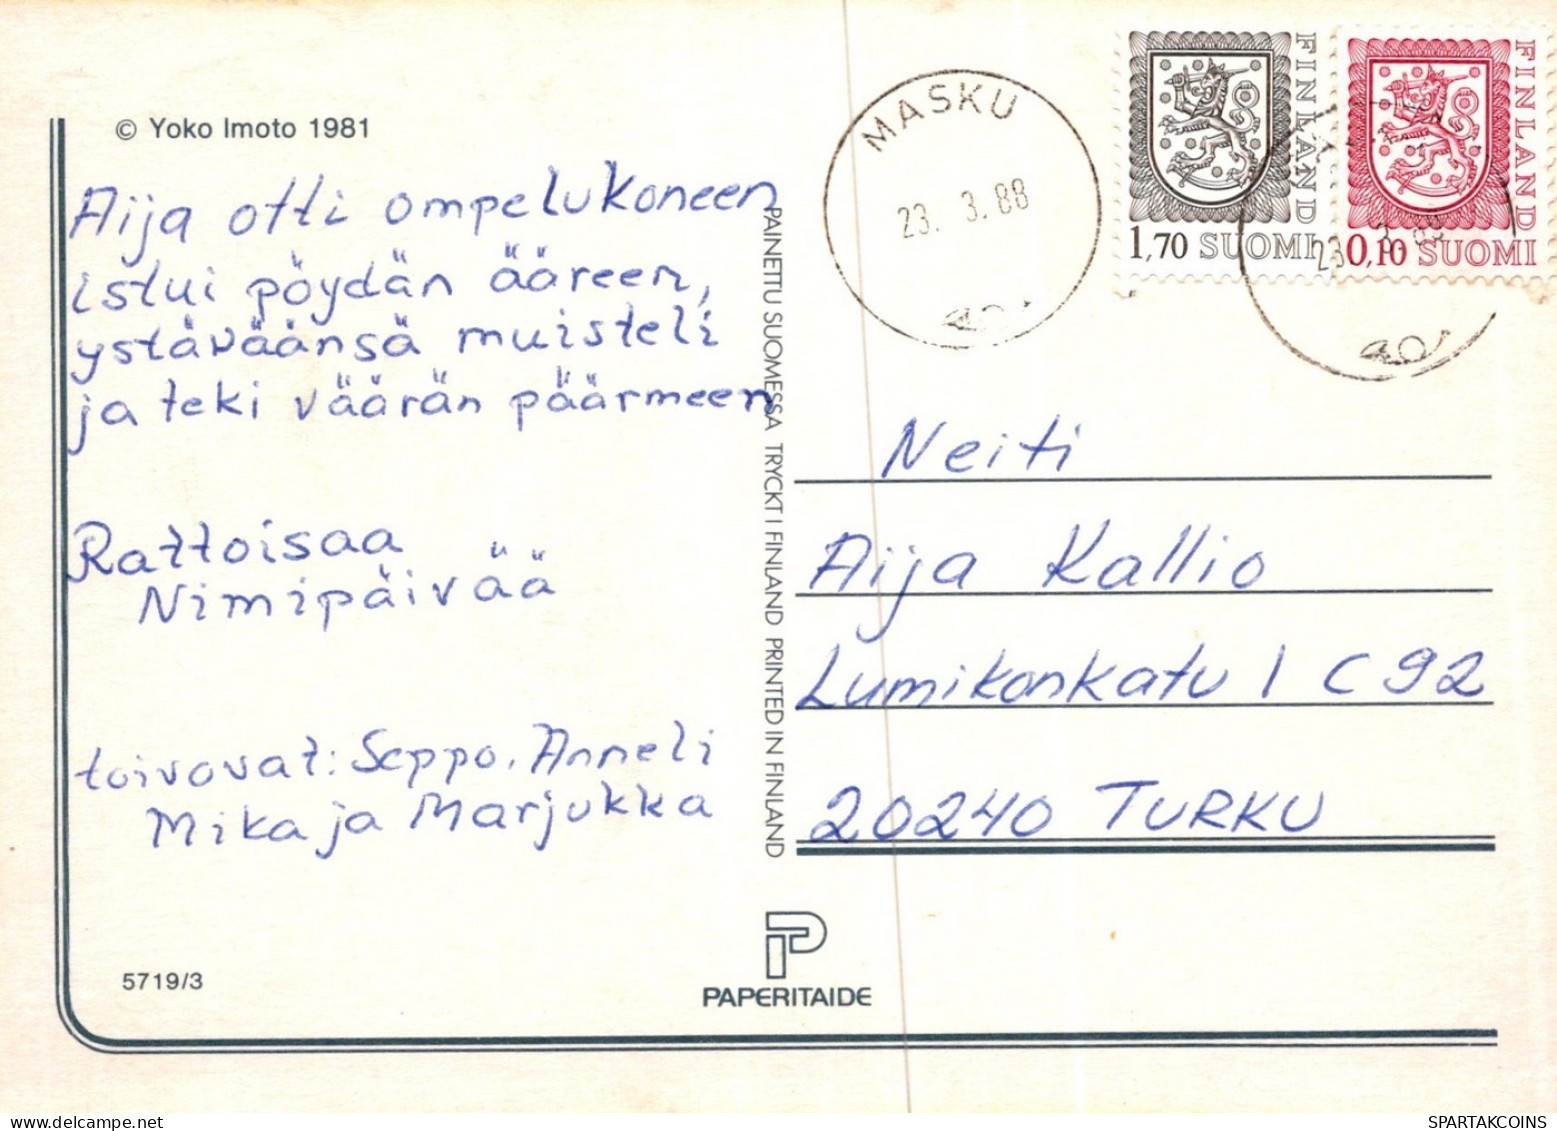 © Yoko Imoto 1981
Aija otti ompelukoneen
istui pöydän ääreen,
ystäväänsä muisteli
ja teki väärän päärmeen
Rattoisaa
Nimipäivää
toivovat: Seppo, Anneli
Mika ja Marjukka
5719/3
PAINETTU SUOMESSA TRYCKT I FINLAND PRINTED IN FINLAND
PAPERITAIDE
MASKU
23. 3.88
FINLAND
1,70 SUOMI
FINLAND
0,10 SUOMI
Neiti
Aija Kallio
Lumikonkatu 1 C 92
20240 TURKU
SPARTAKCOINS